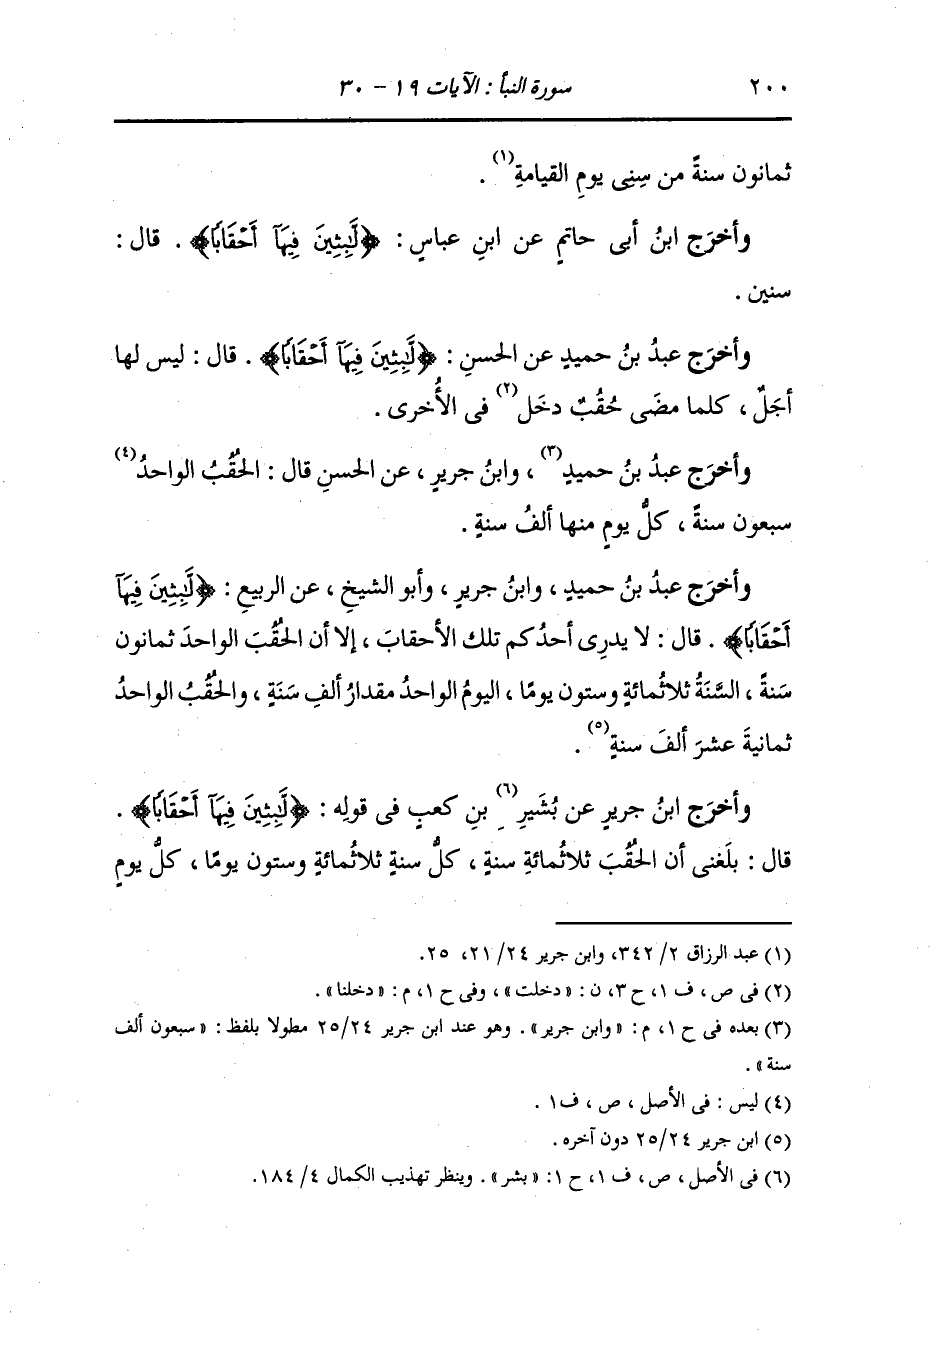 ٢٠٠ سورة النبأ : الآيات ١٩ - ٣٠
ثمانون سنةً من سِنِى يومِ القيامةِ(١) .
وأخرَج ابنُ أبى حاتمٍ عن ابنِ عباسٍ : ﴿لَّٰبِثِينَ فِيهَآ أَحۡقَابٗا﴾ . قال :
سنين .
وأخرَج عبدُ بنُ حميدٍ عن الحسنِ : ﴿لَّٰبِثِينَ فِيهَآ أَحۡقَابٗا﴾ . قال : ليس لها
أجَلٌ ، كلما مضَى حُقُبٌ دخَل(٢) فى الأُخرى .
وأخرَج عبدُ بنُ حميدٍ(٣) ، وابنُ جريرٍ ، عن الحسنِ قال : الحُقُبُ الواحدُ(٤)
سبعون سنةً ، كلُّ يومٍ منها ألفُ سنةٍ .
وأخرَج عبدُ بنُ حميدٍ ، وابنُ جريرٍ ، وأبو الشيخِ ، عن الربيعِ : ﴿لَّٰبِثِينَ فِيهَآ
أَحۡقَابٗا﴾ . قال : لا يدرِى أحدُكم تلك الأحقابَ ، إلا أن الحُقُبَ الواحدَ ثمانون
سَنةً ، السَّنَةُ ثلاثُمائةٍ وستون يومًا ، اليومُ الواحدُ مقدارُ ألفِ سَنَةٍ ، والحُقُبُ الواحدُ
ثمانيةَ عشرَ ألفَ سنةٍ(٥) .
وأخرَج ابنُ جريرٍ عن بُشَيرِ(٦) بنِ كعبٍ فى قولِه : ﴿لَّٰبِثِينَ فِيهَآ أَحۡقَابٗا﴾ .
قال : بلَغنى أن الحُقُبَ ثلاثُمائةِ سنةٍ ، كلُّ سنةٍ ثلاثُمائةٍ وستون يومًا ، كلُّ يومٍ
(١) عبد الرزاق ٢/ ٣٤٢، وابن جرير ٢٤/ ٢١، ٢٥.
(٢) فى ص ، ف ١، ح ٣، ن : «دخلت» ، وفى ح ١، م : «دخلنا» .
(٣) بعده فى ح ١، م : «وابن جرير» . وهو عند ابن جرير ٢٥/٢٤ مطولا بلفظ : «سبعون ألف
سنة» .
(٤) ليس : فى الأصل ، ص ، ف١ .
(٥) ابن جرير ٢٥/٢٤ دون آخره .
(٦) فى الأصل ، ص ، ف ١، ح ١: «بشر» . وينظر تهذيب الكمال ٤/ ١٨٤.